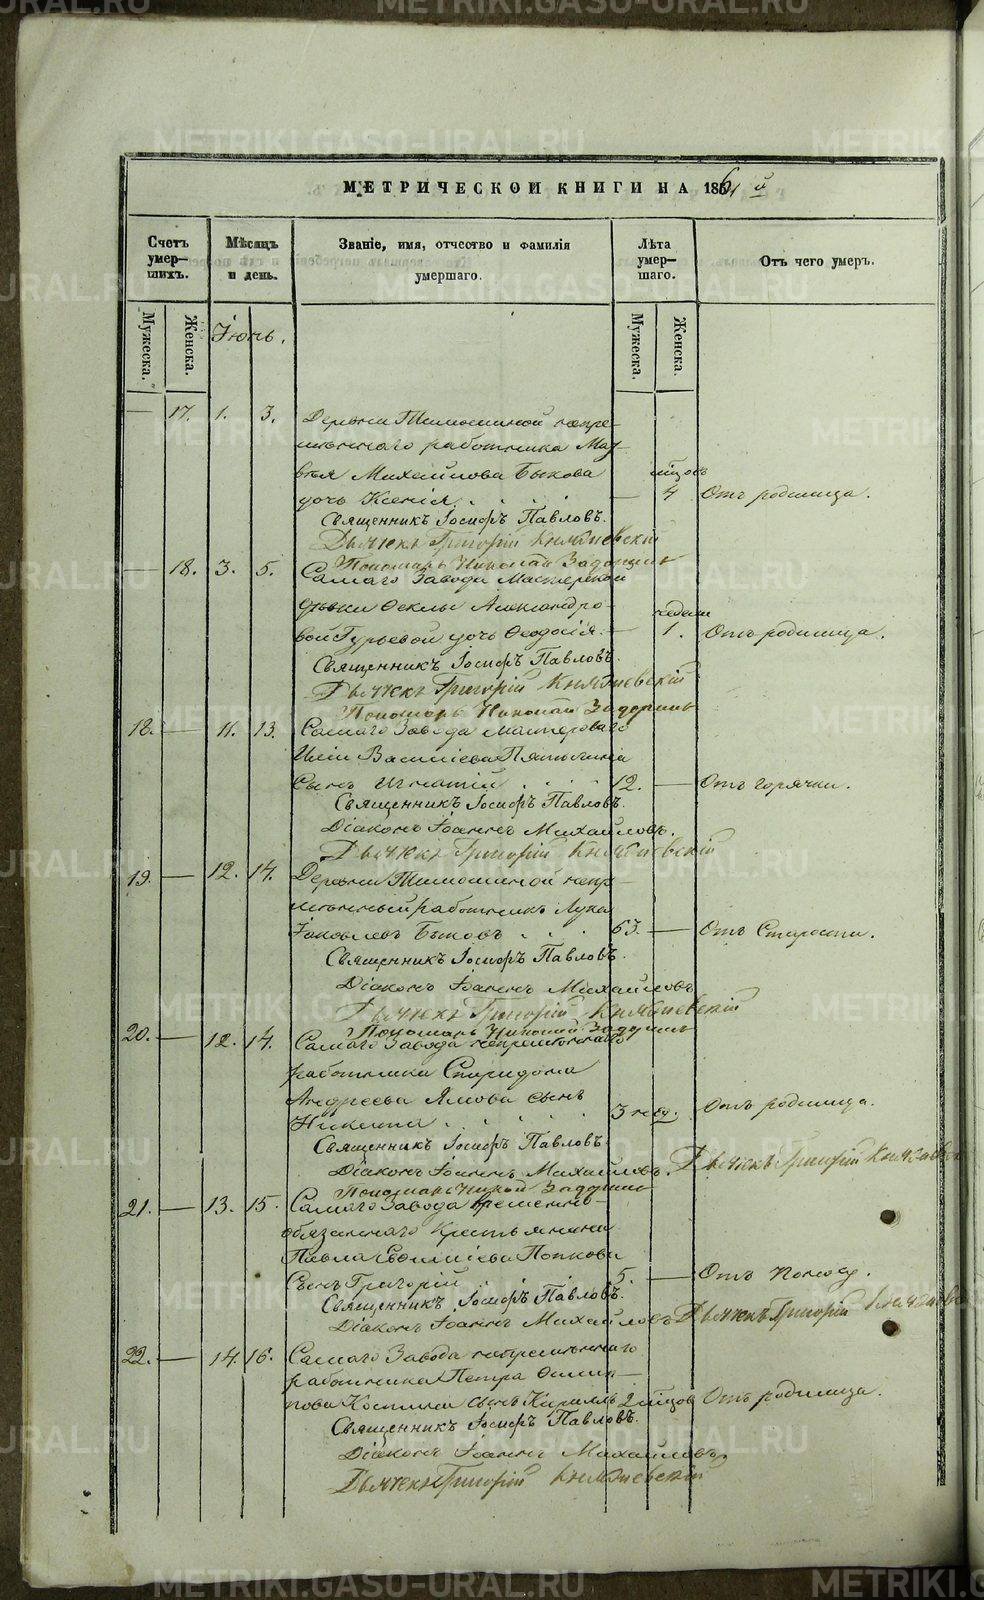 МЕТРИЧЕСКОЙ КНИГИ НА 1861 й
Счетъ умер-шихъ.
Мѣсяцъ и день.
Званіе, имя, отчество и фамилія умершаго.
Лѣта умер-шаго.
Отъ чего умеръ.
Мужеска. Женска. Іюнь. Мужеска. Женска.
— 17. 1. 3. Деревни Тимошиной непре-
мѣннаго работника Мат-
вѣя Михайлова Быкова мѣцовъ
дочь Ксенія. — 4 Отъ родимца.
Священникъ Іосифъ Павловъ.
Дьячекъ Григорій
Пономарь Николай
— 18. 3. 5. Самаго Завода Мастерской
дѣвки Феклы Александро- недели
вой Гурьевой дочь Феодосія. — 1. Отъ родимца.
Священникъ Іосифъ Павловъ.
Дьячекъ Григорій
Пономарь Николай
18. — 11. 13. Самаго Завода Мастероваго
Иліи Василіева
Сынъ Игнатій 12. — Отъ горячки.
Священникъ Іосифъ Павловъ.
Діаконъ Іоаннъ Михайловъ.
Дьячекъ Григорій
19. — 12. 14. Деревни Тимошиной непре-
мѣнный работникъ Лука
Іаковлевъ Быковъ 63. — Отъ Старости.
Священникъ Іосифъ Павловъ.
Діаконъ Іоаннъ Михайловъ
Дьячекъ Григорій
Пономарь Николай
20. — 12. 14. Самаго Завода непремѣннаго
работника Спиридона
Андреева Ямова сынъ
Никита 3 нед. Отъ родимца.
Священникъ Іосифъ Павловъ.
Діаконъ Іоаннъ Михайловъ. Дьячекъ Григорій
Пономарь Николай
21. — 13. 15. Самаго Завода временно-
обязаннаго Крестьянина
Павла Попкова
Сынъ Григорій 5. — Отъ
Священникъ Іосифъ Павловъ.
Діаконъ Іоаннъ Михайловъ Дьячекъ Григорій
22. — 14. 16. Самаго Завода непремѣннаго
работника Петра Осип-
пова Костина сынъ Кириллъ 2 мѣцов Отъ родимца.
Священникъ Іосифъ Павловъ.
Діаконъ Іоаннъ Михайловъ
Дьячекъ Григорій
METRIKI.GASO-URAL.RU